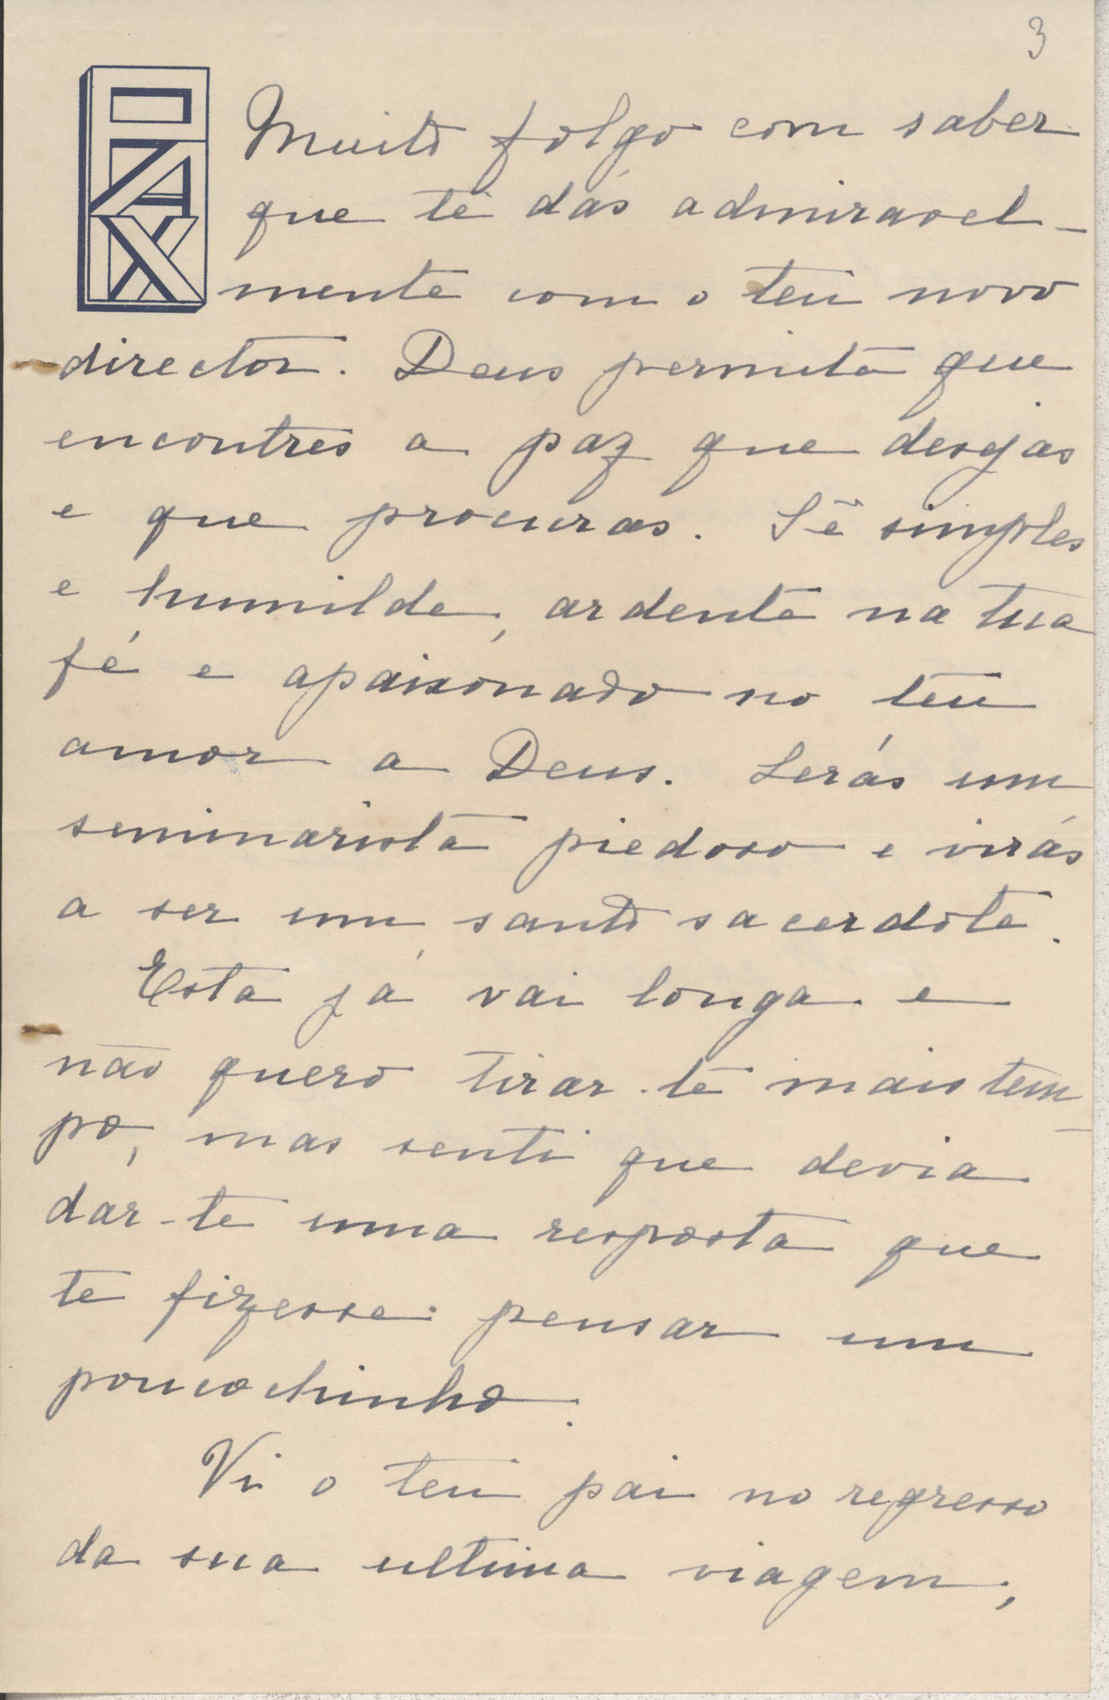 3
PAX
Muito folgo com saber
que te dás admiravel-
mente com o teu novo
director. Deus permita que
encontres a paz que desejas
e que procuras. Sê simples
e humilde, ardente na tua
fé e apaixonado no teu
amor a Deus. Serás um
seminarista piedoso e virás
a ser um santo sacerdote.
Esta já vai longa e
não quero tirar-te mais tem-
po, mas senti que devia
dar-te uma resposta que
te fizesse pensar um
poucochinho.
Vi o teu pai no regresso
da sua ultima viagem,